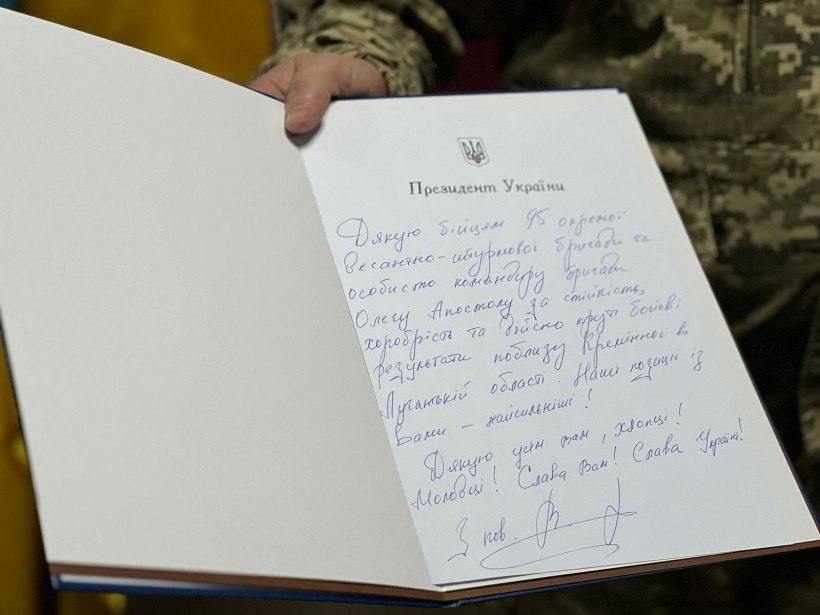 Президент України
Дякую бійцям 95 окремої
десантно-штурмової бригади та
особисто командиру бригади
Олегу Апостолу за стійкість,
хоробрість та дійсно круті бойові
результати поблизу Кремінної в
Луганській області. Наші позиції із
Вами – найсильніші!
Дякую усім вам, хлопці!
Молодці! Слава Вам! Слава Україні!
З пов.